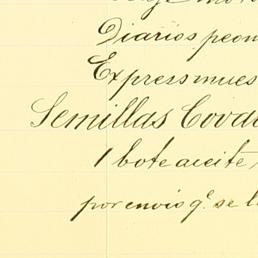 Diarios peon
Express mues
Semillas Covad
1 bote aceite,
por envio qe. se l